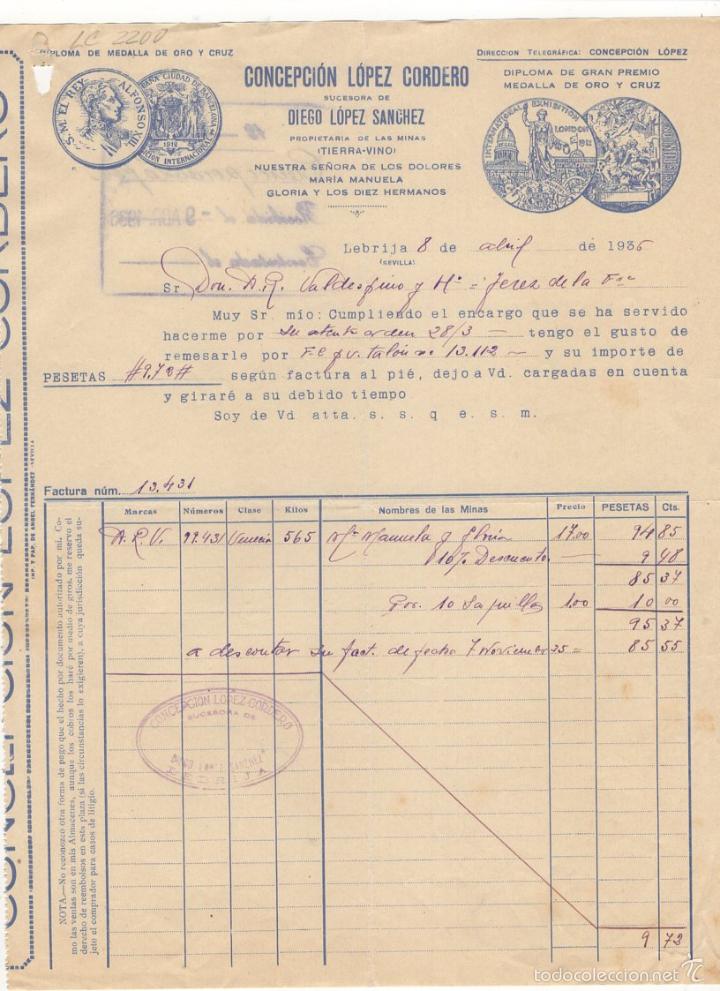 LC 2200
DIPLOMA DE MEDALLA DE ORO Y CRUZ
DIRECCION TELEGRÁFICA: CONCEPCIÓN LÓPEZ
CONCEPCIÓN LÓPEZ CORDERO
SUCESORA DE
DIEGO LÓPEZ SANCHEZ
PROPIETARIA DE LAS MINAS
(TIERRA-VINO)
NUESTRA SEÑORA DE LOS DOLORES
MARÍA MANUELA
GLORIA Y LOS DIEZ HERMANOS
DIPLOMA DE GRAN PREMIO
MEDALLA DE ORO Y CRUZ
S. M. EL REY ALFONSO XIII
INTERNATIONAL EXHIBITION
LONDON
Lebrija 8 de abril de 1936
(SEVILLA)
Sr Don. A. R. Valdespino y Hº = Jerez de la Fra
Muy Sr mío: Cumpliendo el encargo que se ha servido
hacerme por su atenta orden 28/3 — tengo el gusto de
remesarle por F.C. p.v. talón nº 13.112 — y su importe de
PESETAS #9.73# según factura al pié, dejo a Vd. cargadas en cuenta
y giraré a su debido tiempo
Soy de Vd atta. s. s. q e. s. m.
Factura núm. 13.431
Marcas Números Clase Kilos Nombres de las Minas Precio PESETAS Cts.
A. R. V. 99.431 Venecia 565 Mª Manuela y Gloria 17.00 94 85
10% Descuento 9 48
85 37
Por 10 saquillos 1.00 10 00
95 37
a descontar su fact. de fecha 7 Noviembre 35 = 85 55
9 73
CONCEPCIÓN LÓPEZ CORDERO
SUCESORA DE
DIEGO LÓPEZ SANCHEZ
LEBRIJA
NOTA.—No reconozco otra forma de pago que el hecho por documento autorizado por mi. Co-
mo las ventas son en mis Almacenes, aunque los cobros los haré por medio de giros, me reservo el
derecho de reembolsos en esta plaza (si las circunstancias lo exigieren), a cuya jurisdicción queda su-
jeto el comprador para casos de litigio.
IMP. Y PAP. DE ANGEL FERNÁNDEZ - SEVILLA
CONCEPCIÓN LÓPEZ CORDERO
todocoleccion.net